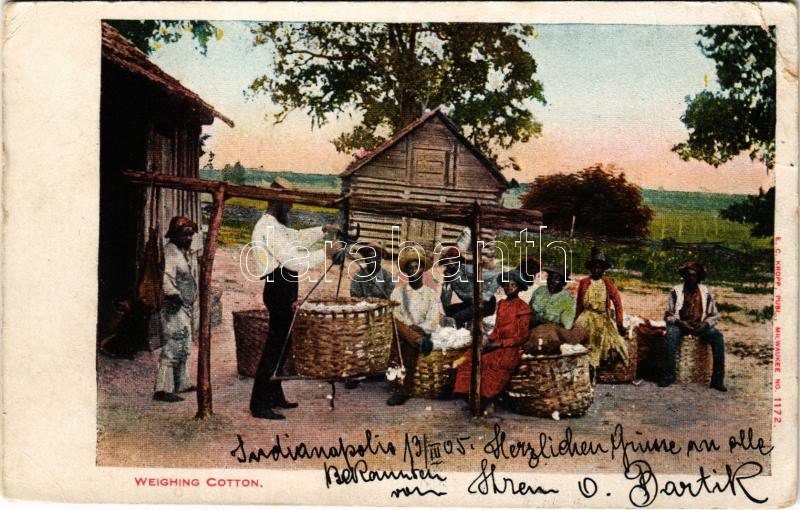 E. C. KROPP, PUBL., MILWAUKEE NO. 1172.
darabanth
Indianapolis 13/III 05. Herzlichen Grüsse an alle
Bekannten
von Ihrem O. Bartik
WEIGHING COTTON.